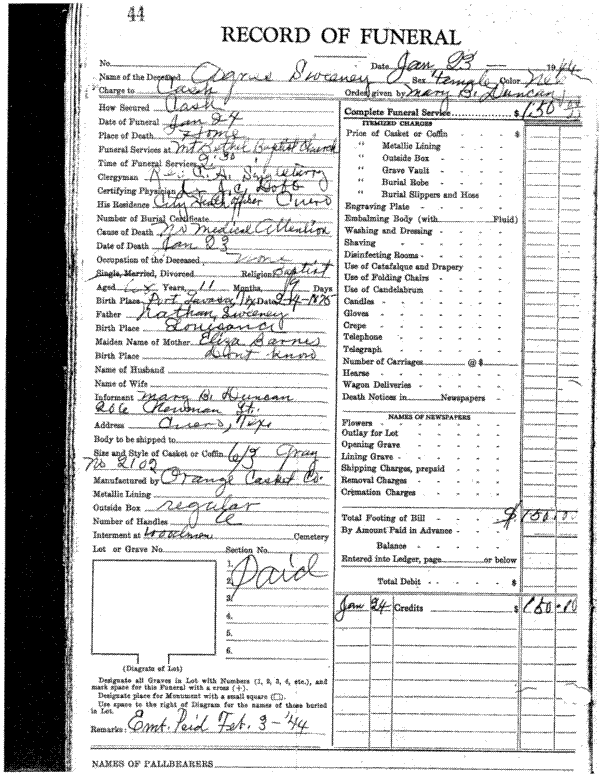 44
RECORD OF FUNERAL
No. Date Jan 23 1944
Name of the Deceased Agnes Sweeney Sex Female Color Neg
Charge to Cash Order given by Mary B. Duncan
How Secured Cash
Date of Funeral Jan 24
Place of Death Home
Funeral Services at Mt Bethel Baptist Church
Time of Funeral Services 2:30
Clergyman Rev. C. A. Singleterry
Certifying Physician
His Residence City Health officer Cuero
Number of Burial Certificate
Cause of Death No Medical Attention
Date of Death Jan 23
Occupation of the Deceased none
Single, Married, Divorced Religion Baptist
Aged Years, 11 Months, 19 Days
Birth Place Port Lavaca, Tex Date 2-4-1875
Father Nathan Sweeney
Birth Place Louisanci
Maiden Name of Mother Eliza Barnes
Birth Place Dont know
Name of Husband
Name of Wife
Informent Mary B. Duncan
206 Newman St.
Address Cuero, Tex.
Body to be shipped to
Size and Style of Casket or Coffin 6/3 Gray
No 2102
Manufactured by Orange Casket Co.
Metallic Lining
Outside Box regular
Number of Handles 6
Interment at Woodmen Cemetery
Lot or Grave No. Section No.
1.
2. Paid
3.
4.
5.
6.
(Diagram of Lot)
Designate all Graves in Lot with Numbers (1, 2, 3, 4, etc.), and
mark space for this Funeral with a cross (+).
Designate place for Monument with a small square (□).
Use space to the right of Diagram for the names of those buried
in Lot.
Remarks: Emt. Paid Feb. 3-'44
NAMES OF PALLBEARERS
Complete Funeral Service $ 150
ITEMIZED CHARGES
Price of Casket or Coffin $
" Metallic Lining
" Outside Box
" Grave Vault
" Burial Robe
" Burial Slippers and Hose
Engraving Plate
Embalming Body (with Fluid)
Washing and Dressing
Shaving
Disinfecting Rooms
Use of Catafalque and Drapery
Use of Folding Chairs
Use of Candelabrum
Candles
Gloves
Crepe
Telephone
Telegraph
Number of Carriages @ $
Hearse
Wagon Deliveries
Death Notices in Newspapers
NAMES OF NEWSPAPERS
Flowers
Outlay for Lot
Opening Grave
Lining Grave
Shipping Charges, prepaid
Removal Charges
Cremation Charges
Total Footing of Bill $ 150.00
By Amount Paid in Advance
Balance
Entered into Ledger, page or below
Total Debit $
Jan 24 Credits $ 150.00